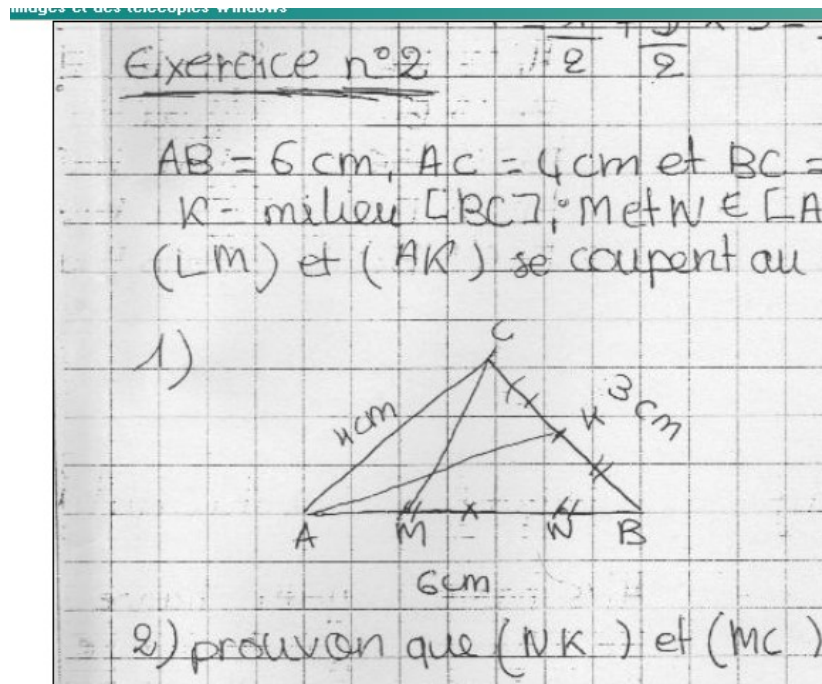 images et des télécopies Windows
2 2
Exercice n°2
AB = 6 cm, AC = 4 cm et BC =
K = milieu [BC]; M et N ∈ [A
(LM) et (AK) se coupent au
1)
C
4cm
K 3 cm
A M N B
6cm
2) prouvon que (NK) et (MC)